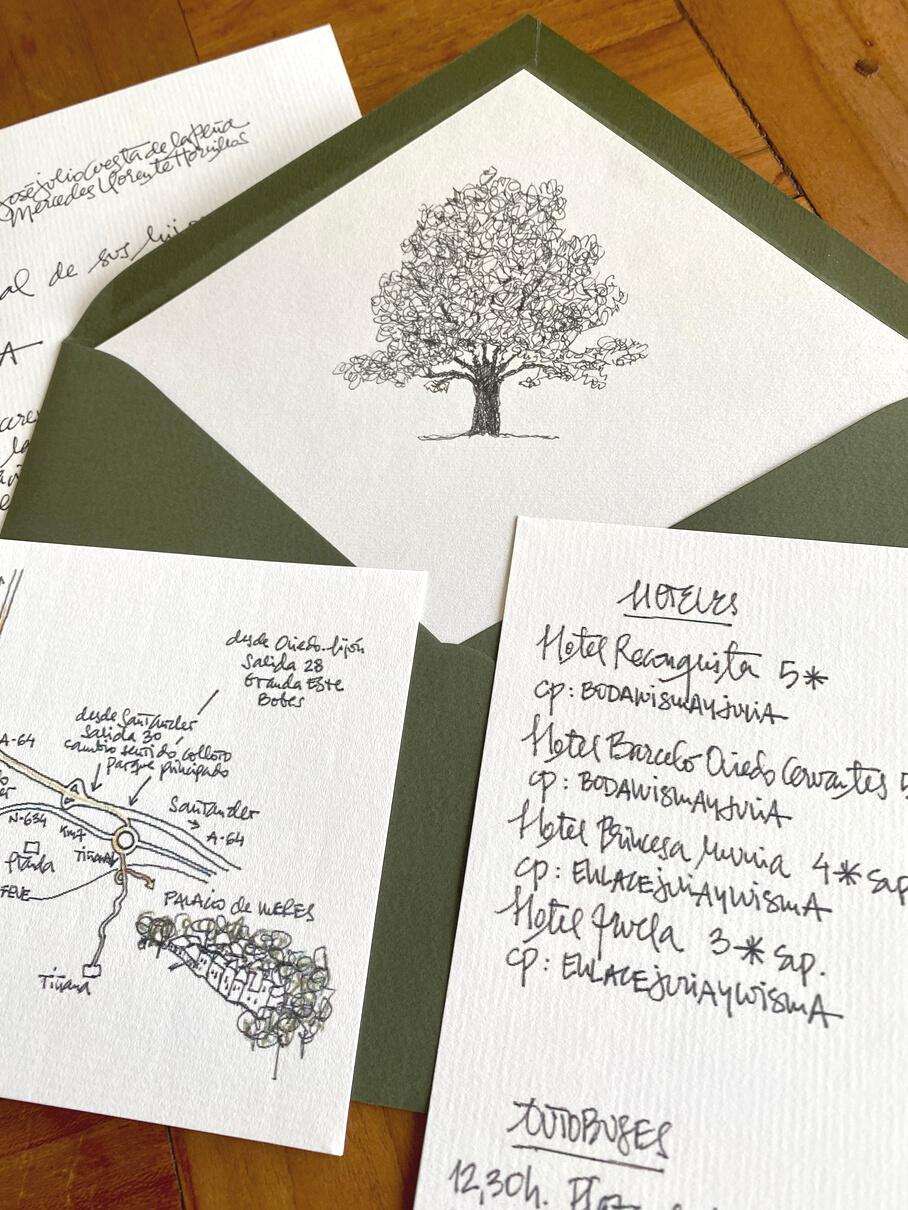 José Julio Cuesta de la Peña
Mercedes Llorente Hornillos
al de sus hijos
A
la
desde Oviedo-Gijón
Salida 28
Granda Este
Bobes
desde Santander
Salida 30
cambio sentido Colloto
Parque principado
A-64
Santander
A-64
N-634
Km7
Tiñana
FEVE
PALACIO de MERES
Tiñana
HOTELES
Hotel Reconquista 5*
CP: BODAWISMAYJULIA
Hotel Barceló Oviedo Cervantes 5
CP: BODAWISMAYJULIA
Hotel Princesa Munia 4* Sup
CP: ENLACEJULIAYWISMA
Hotel 3* Sup.
CP: ENLACEJULIAYWISMA
AUTOBUSES
12,30h.